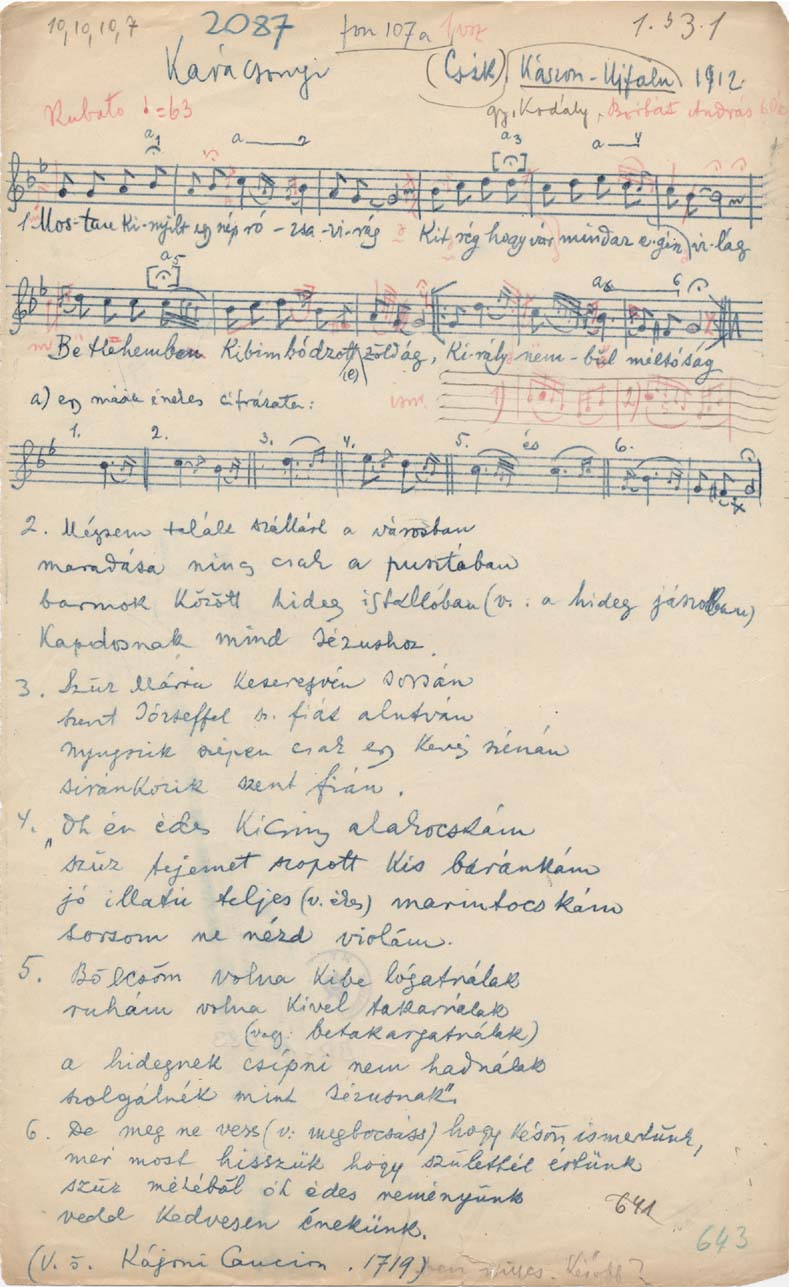 10, 10, 10, 7 2087 fon 107a 1.53.1
Karácsonyi (Csík) Kászon-Ujfalu 1912.
Rubato ♩=63 gy. Kodály, Borbát András
a1 a 2 a3 a 4
1. Mos-tan Ki-nyilt egy nép ró-zsa-vi-rág Kit rég hogy vár mind az e-gész vi-lág
a5 a6 6
Betlehemben Kibimbódzott zöldág, Ki-rály nem-bül méltóság
(e)
a) egy másik énekes cifrázatai: ism. 1) 2)
1. 2. 3. 4. 5. és 6.
2. Mégsem talále szállást a városban
maradása nincs csak a pusztában
barmok között hideg istállóban (v. : a hideg jászolban)
Kapdosnak mind Jézushoz.
3. Szüz Mária Keseregvén sorsán
szent Józseffel sz. fiát alutván
nyugszik szépen csak egy kevés szénán
siránkozik szent fián.
4. "Oh én édes Kicsiny alakocskám
szüz tejemet szopott Kis báránkám
jó illatú teljes (v. édes) marintocskám
sorsom ne nézd violám.
5. Bölcsőm volna Kibe lógatnálak
ruhám volna Kivel takarnálak
(vagy: betakargatnálak)
a hidegnek csípni nem hadnálak
szolgálnék mint Jézusnak".
6. De meg ne vess (v: megbocsáss) hogy későn ismertünk,
mer most hisszük hogy születtél értünk
szüz méhéből óh édes reményünk
vedd Kedvesen énekünk.
641
643
(V. ö. Kájoni Cancion. 1719) nincs. Később?